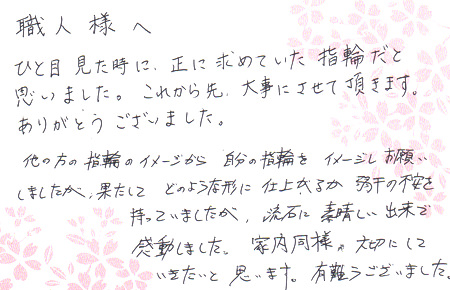 職人様へ
ひと目見た時に、正に求めていた指輪だと
思いました。これから先、大事にさせて頂きます。
ありがとうございました。
他の方の指輪のイメージから自分の指輪をイメージしお願い
しましたが、果たしてどのような形に仕上がるか若干の不安を
持っていましたが、流石に素晴しい出来で
感動しました。家内同様、大切にして
いきたいと思います。有難うございました。